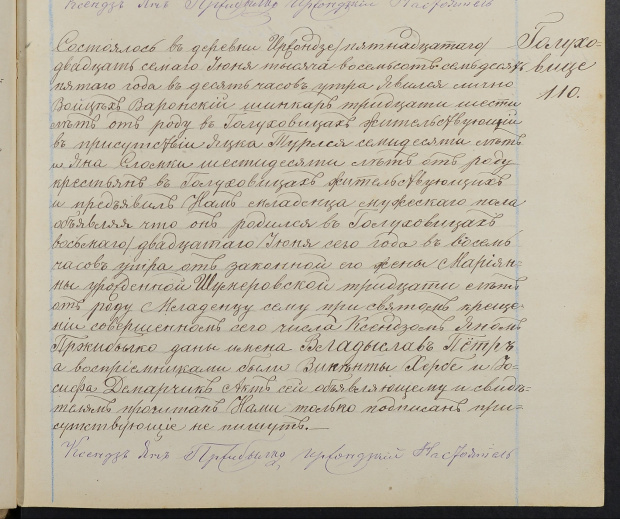 Ксендзъ Янъ Пржибылко Ирзондзкій Настоятель
Голухо-
вице
110.
Состоялось въ деревни Ирзондзе /пятнадцатаго/
двадцать семаго Іюня тысяча восемьсотъ семьдесятъ
пятаго года въ десять часовъ утра. Явился лично
Войцѣхъ Варонскій шинкарь тридцати шести
лѣтъ отъ роду въ Голуховицахъ жительствующій
въ присутствіи Яцка семидесяти лѣтъ
и Яна шестидесяти лѣтъ отъ роду
крестьянъ въ Голуховицахъ жительствующихъ
и предъявилъ Намъ младенца мужескаго пола
объявляя что онъ родился въ Голуховицахъ
восьмаго /двадцатаго/ Іюня сего года въ восемь
часовъ утра отъ законной его жены Маріян-
ны урожденной тридцати лѣтъ
отъ роду Младенцу сему при святомъ креще-
ніи совершенномъ сего числа Ксендзомъ Яномъ
Пржибылко даны имена Владыславъ Пётръ
а воспріемниками были Винценты и Іо-
сифа Демарчикъ Актъ сей объявляющему и свидѣ-
телямъ прочитанъ Нами только подписанъ при-
сутствующіе не пишутъ.—
Ксендзъ Янъ Пржибылко Ирзондзкій Настоятель